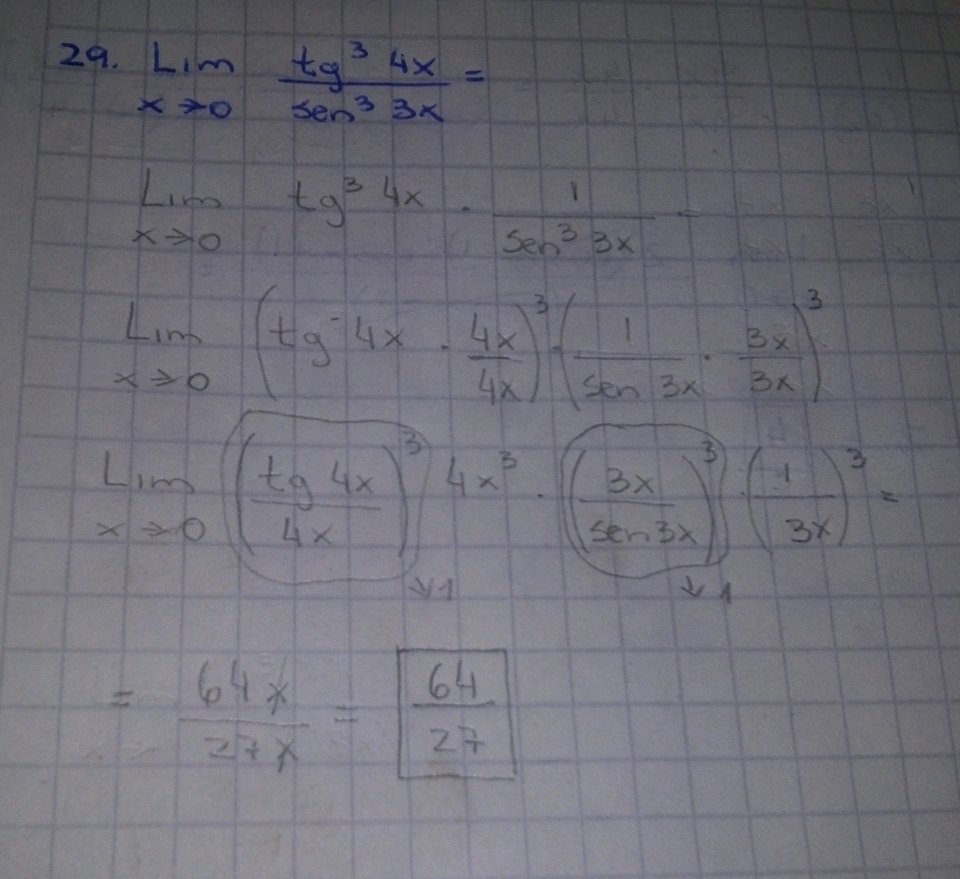 29. Lim tg³ 4x / sen³ 3x =
x→0
Lim tg³ 4x · 1 / sen³ 3x =
x→0
Lim (tg 4x · 4x/4x)³ · (1/sen 3x · 3x/3x)³
x→0
Lim (tg 4x / 4x)³ 4x³ · (3x / sen 3x)³ · (1 / 3x)³ =
x→0
↓1 ↓1
= 64x / 27x = 64 / 27